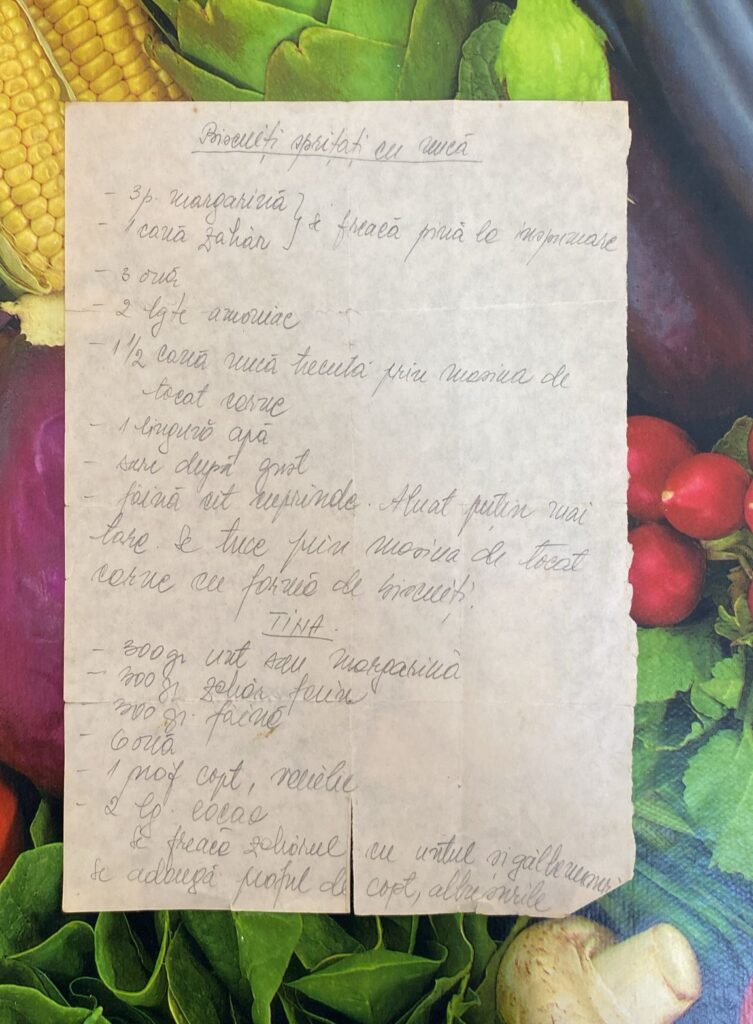 Biscuiți sprițați cu nucă
- 3 p. margarină }
- 1 cană zahăr } se freacă pînă la inspumare
- 3 ouă
- 2 lgțe amoniac
- 1 1/2 cană nucă trecută prin mașina de
tocat carne
- 1 lingură apă
- sare după gust
- făină cît cuprinde. Aluat puțin mai
tare. Se trece prin mașina de tocat
carne cu formă de biscuiți.
TINA.
- 300 gr unt sau margarină
- 300 gr. zahăr farin
- 300 gr. făină
- 6 ouă
- 1 praf copt, vanilie
- 2 lg. cacao
Se freacă zahărul cu untul și gălbenușuri
Se adaugă praful de copt, albușurile